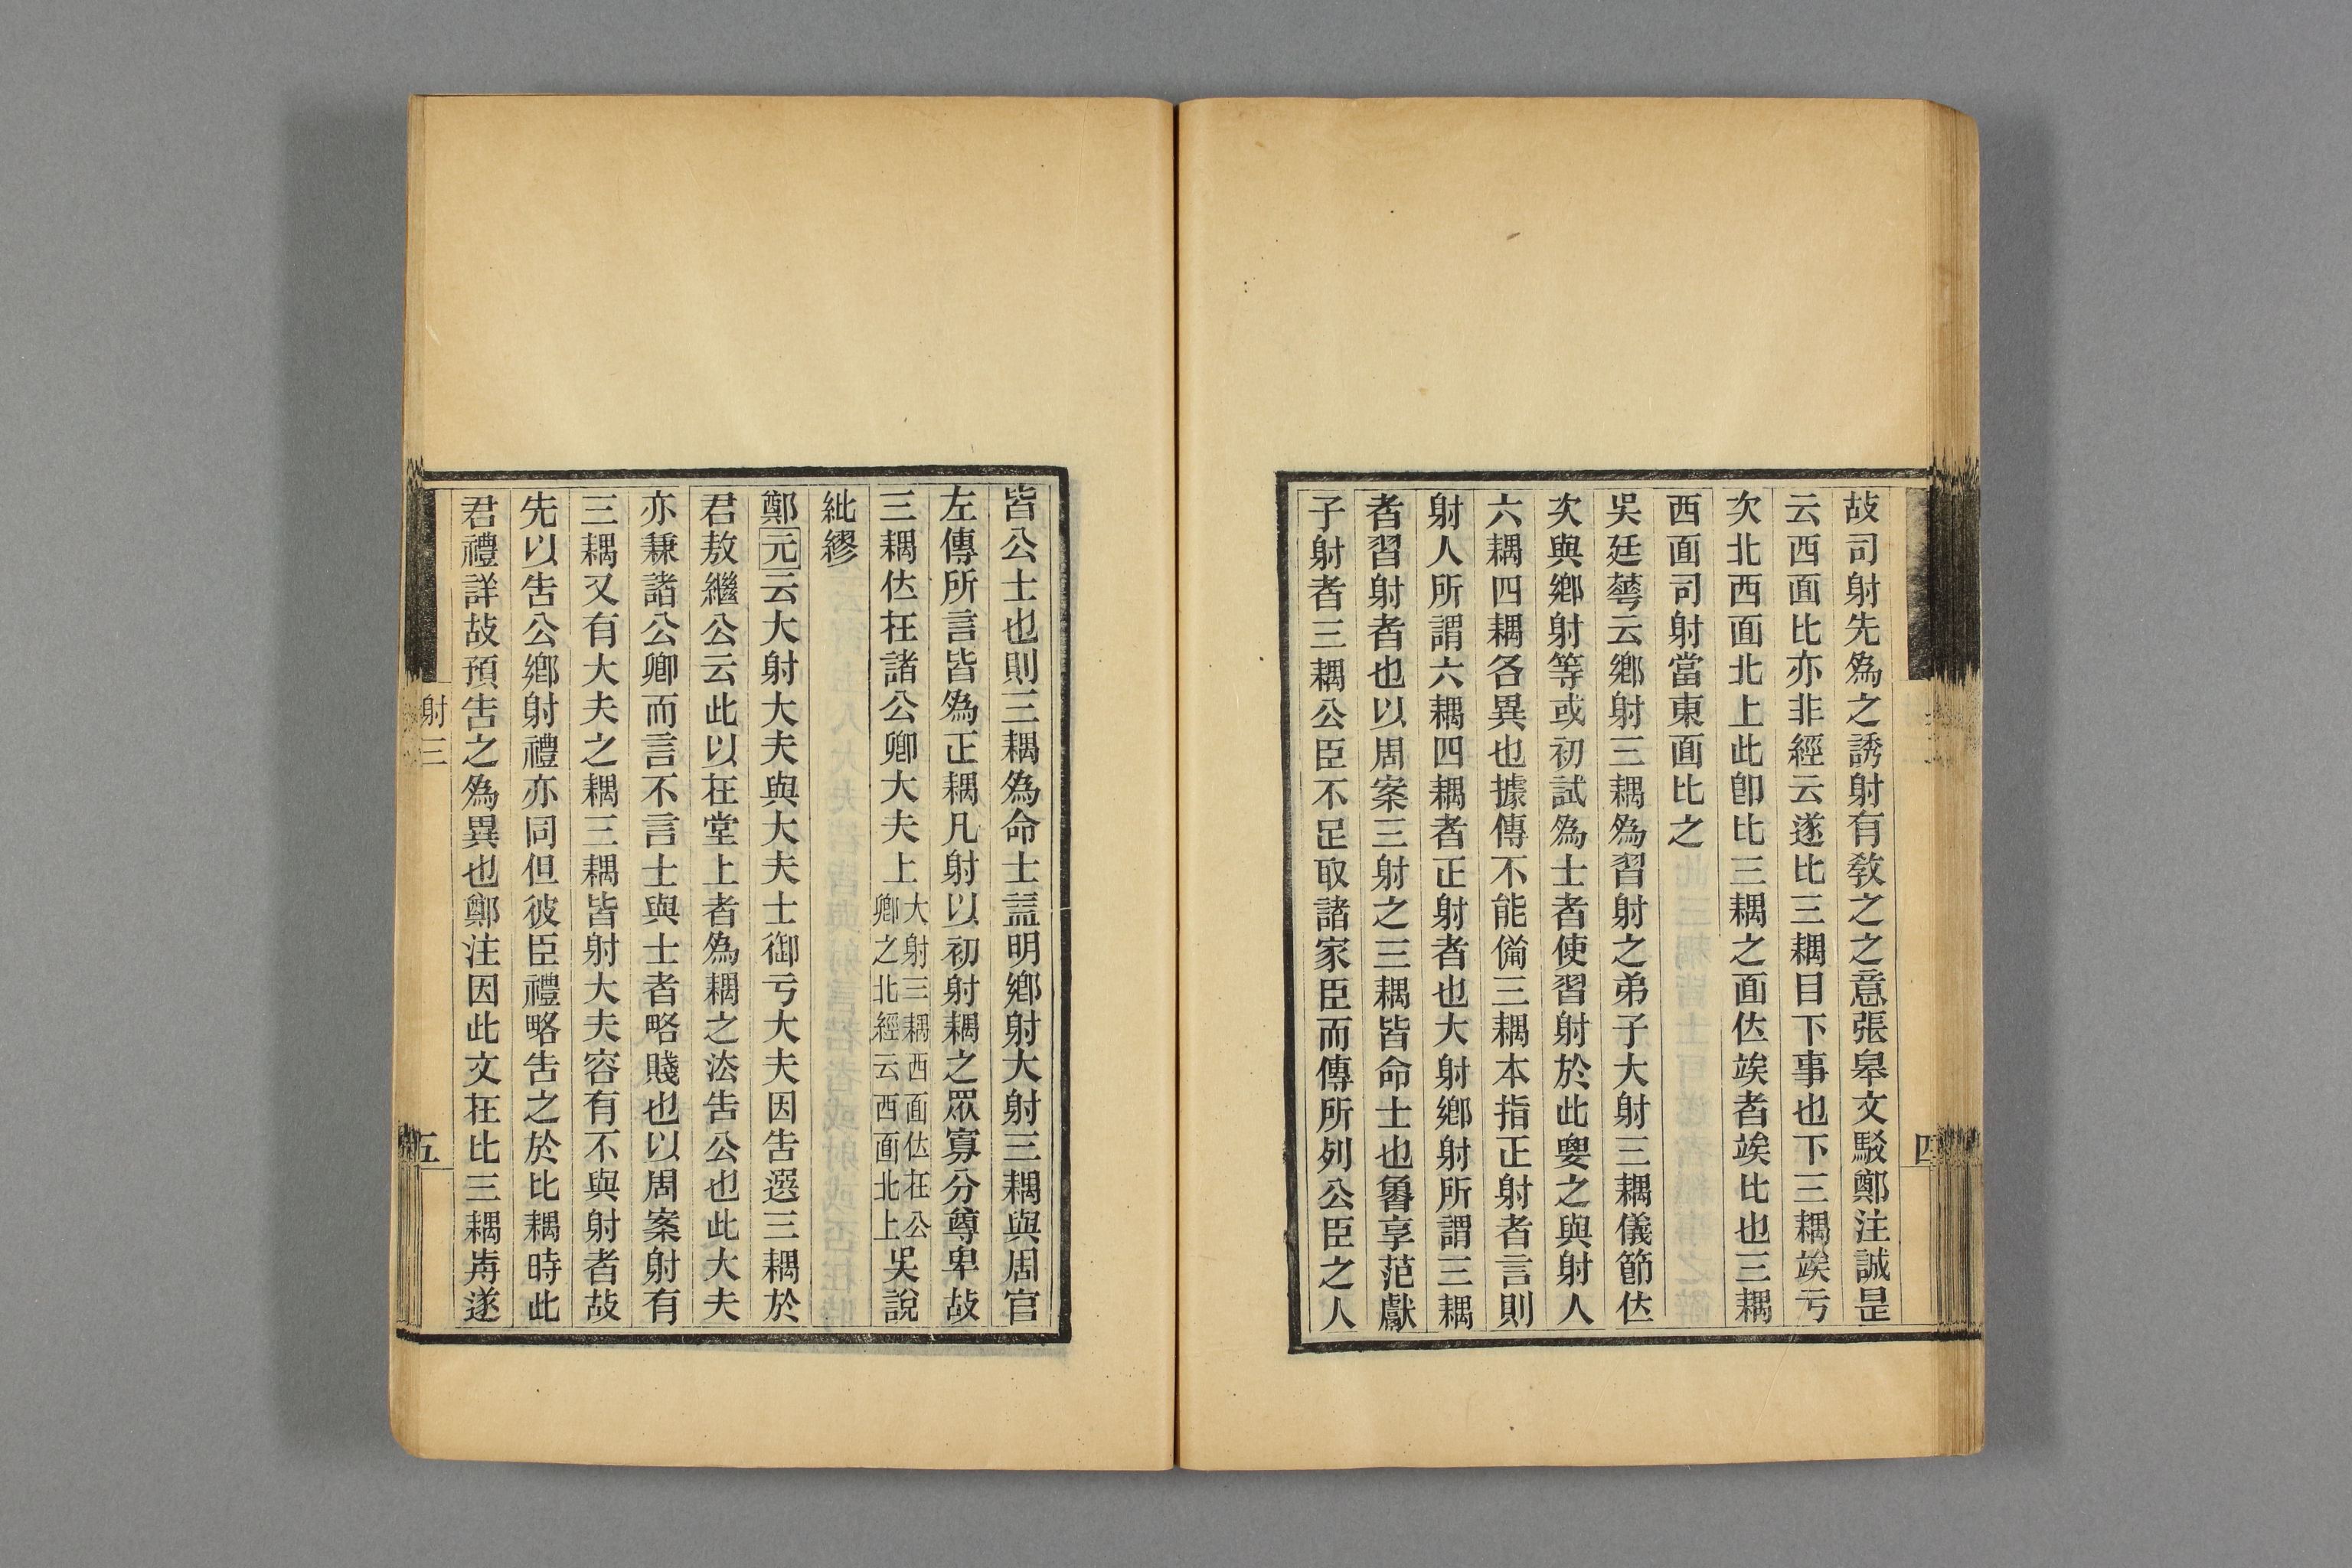 故司射先爲之誘射有敎之之意張皋文駁鄭注誠是
云西面比亦非經云遂比三耦目下事也下三耦竢亏
次北西面北上此卽比三耦之面位竢者竢比也三耦
西面司射當東面比之
吳廷華云鄉射三耦爲習射之弟子大射三耦儀節位
次與鄉射等或初試爲士者使習射於此要之與射人
六耦四耦各異也據傳不能備三耦本指正射者言則
射人所謂六耦四耦者正射者也大射鄉射所謂三耦
者習射者也以周案三射之三耦皆命士也魯享范獻
子射者三耦公臣不足取諸家臣而傳所列公臣之人
四
皆公士也則三耦爲命士葢明鄉射大射三耦與周官
左傳所言皆爲正耦凡射以初射耦之眾寡分尊卑故
三耦位在諸公卿大夫上大射三耦西面位在公卿之北經云西面北上吳說
紕繆
鄭元云大射大夫與大夫士御亏大夫因告選三耦於
君敖繼公云此以在堂上者爲耦之法告公也此大夫
亦兼諸公卿而言不言士與士者略賤也以周案射有
三耦又有大夫之耦三耦皆射大夫容有不與射者故
先以告公鄉射禮亦同但彼臣禮略告之於比耦時此
君禮詳故預告之爲異也鄭注因此文在比三耦歬遂
射三
五